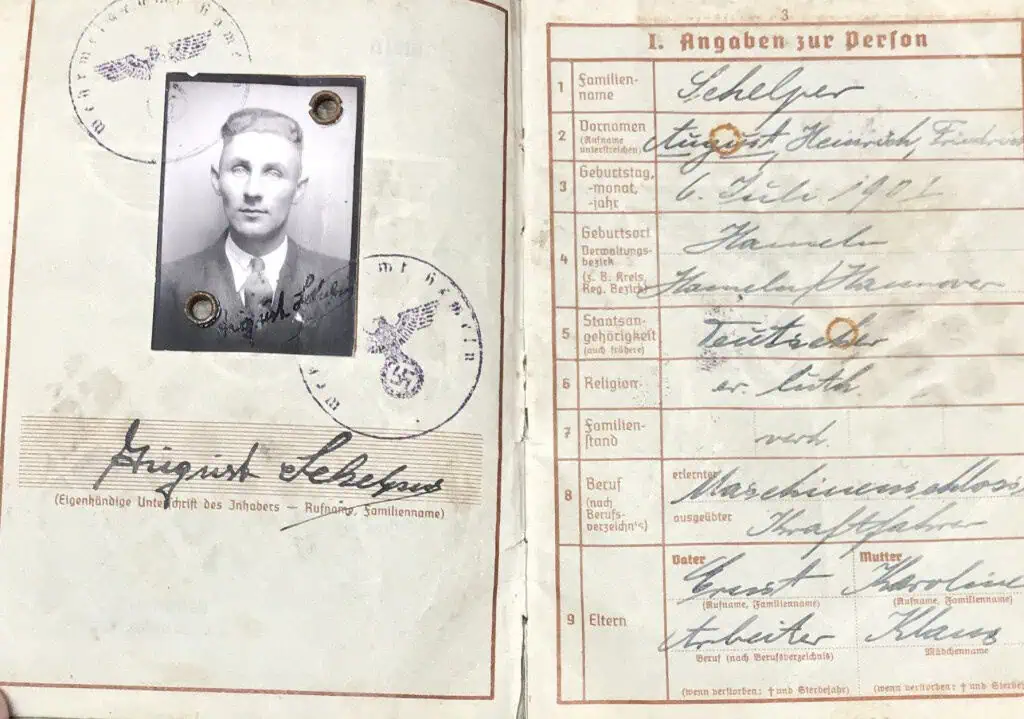 Wehrmeldeamt Hameln
August Schelper
Wehrmeldeamt Hameln
August Schelper
(Eigenhändige Unterschrift des Inhabers — Rufname, Familienname)
3
I. Angaben zur Person
1 Familien-
name Schelper
2 Vornamen August, Heinrich, Friedrich
(Rufname
unterstreichen)
3 Geburtstag, 6. Juli
-monat,
-jahr
4 Geburtsort Hameln
Verwaltungs-
bezirk
(z. B. Kreis, Hameln/Hannover
Reg. Bezirk)
5 Staatsan-
gehörigkeit Teutscher
(auch frühere)
6 Religion ev. luth.
7 Familien-
stand verh.
8 Beruf erlernter Maschinenschloss
(nach
Berufs-
verzeichn's) ausgeübter Kraftfahrer
9 Eltern
Vater Mutter
Ernst Karoline
(Rufname, Familienname) (Rufname, Familienname)
Arbeiter Klaus
Beruf (nach Berufsverzeichnis) Mädchenname
(wenn verstorben: † und Sterbejahr) (wenn verstorben: † und Sterbejahr)